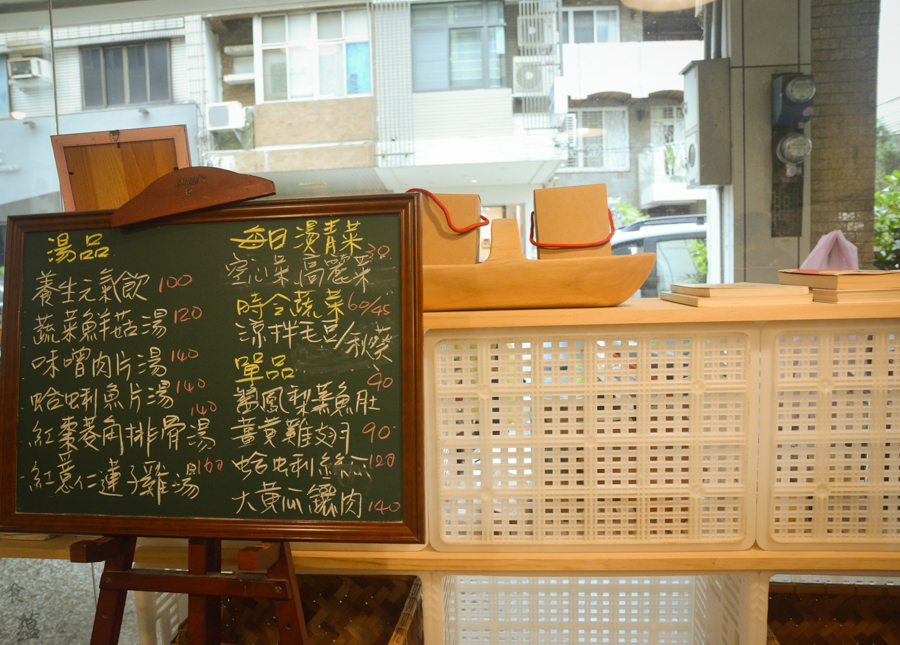 湯品
養生元氣飲 100
蔬菜鮮菇湯 120
味噌肉片湯 140
蛤蜊魚片湯 140
紅棗菱角排骨湯 140
紅薏仁蓮子雞湯 160
每日燙青菜 30
空心菜/高麗菜
時令蔬菜 60/45
涼拌毛豆/秋葵
單品
鳳梨蒸魚肚 90
薑黃雞翅 90
蛤蜊絲瓜 120
大黃瓜鑲肉 140